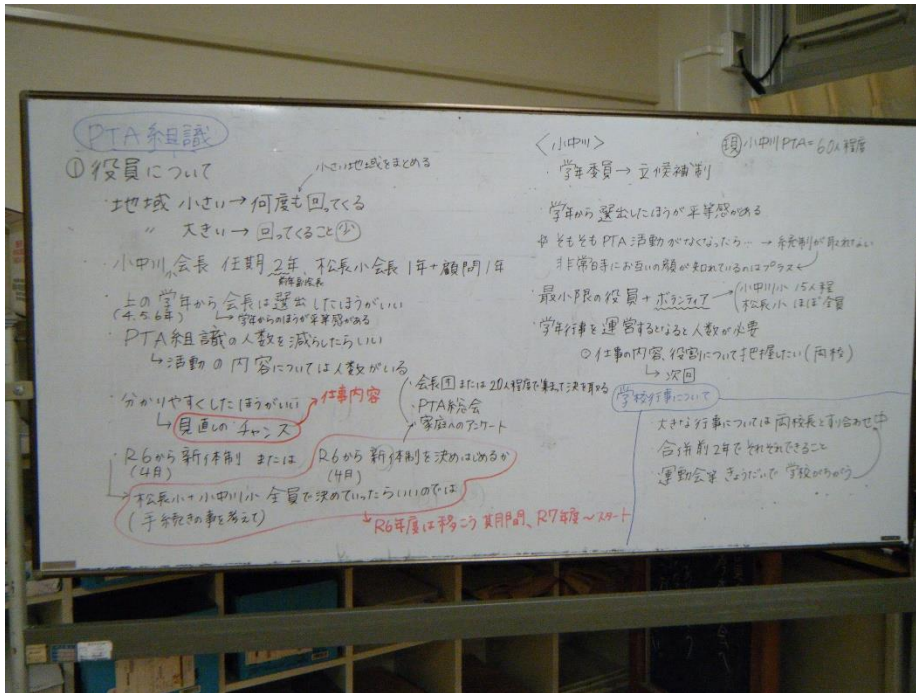 PTA組識
①役員について
小さい地域をまとめる
・地域 小さい→何度も回ってくる
〃 大きい→回ってくること少
・小中川小会長 任期2年、松長小会長1年+顧問1年
前年副会長
・上の学年から会長は選出したほうがいい
(4.5.6年) ↳学年からのほうが平等感がある
・PTA組識の人数を減らしたらいい
↳活動の内容については人数がいる
・分かりやすくしたほうがいい
仕事内容
↳見直しのチャンス
・会長④または20人程度で集まって決を取る
・PTA総会
・家庭へのアンケート
・R6から新体制 または R6から新体制を決めはじめるか
(4月) (4月)
松長小+小中川小 全員で決めていったらいいのでは
(手続きの事を考えて)
↳R6年度は移こう期間、R7年度〜スタート
〈小中川〉
現 小中川PTA=60人程度
・学年委員→立候補制
・学年から選出したほうが平等感がある
そもそもPTA活動がなくなったら…→統制が取れない
非常時にお互いの顔が知れているのはプラス
・最小限の役員+ボランティア
小中川小 15人程
松長小 ほぼ全員
・学年行事を運営するとなると人数が必要
◎仕事の内容、役割について把握したい(両校)
↳次回
学校行事について
大きな行事については両校長とすり合わせ中
・合併前2年でそれぞれできること
・運動会等 きょうだいで学校がちがう